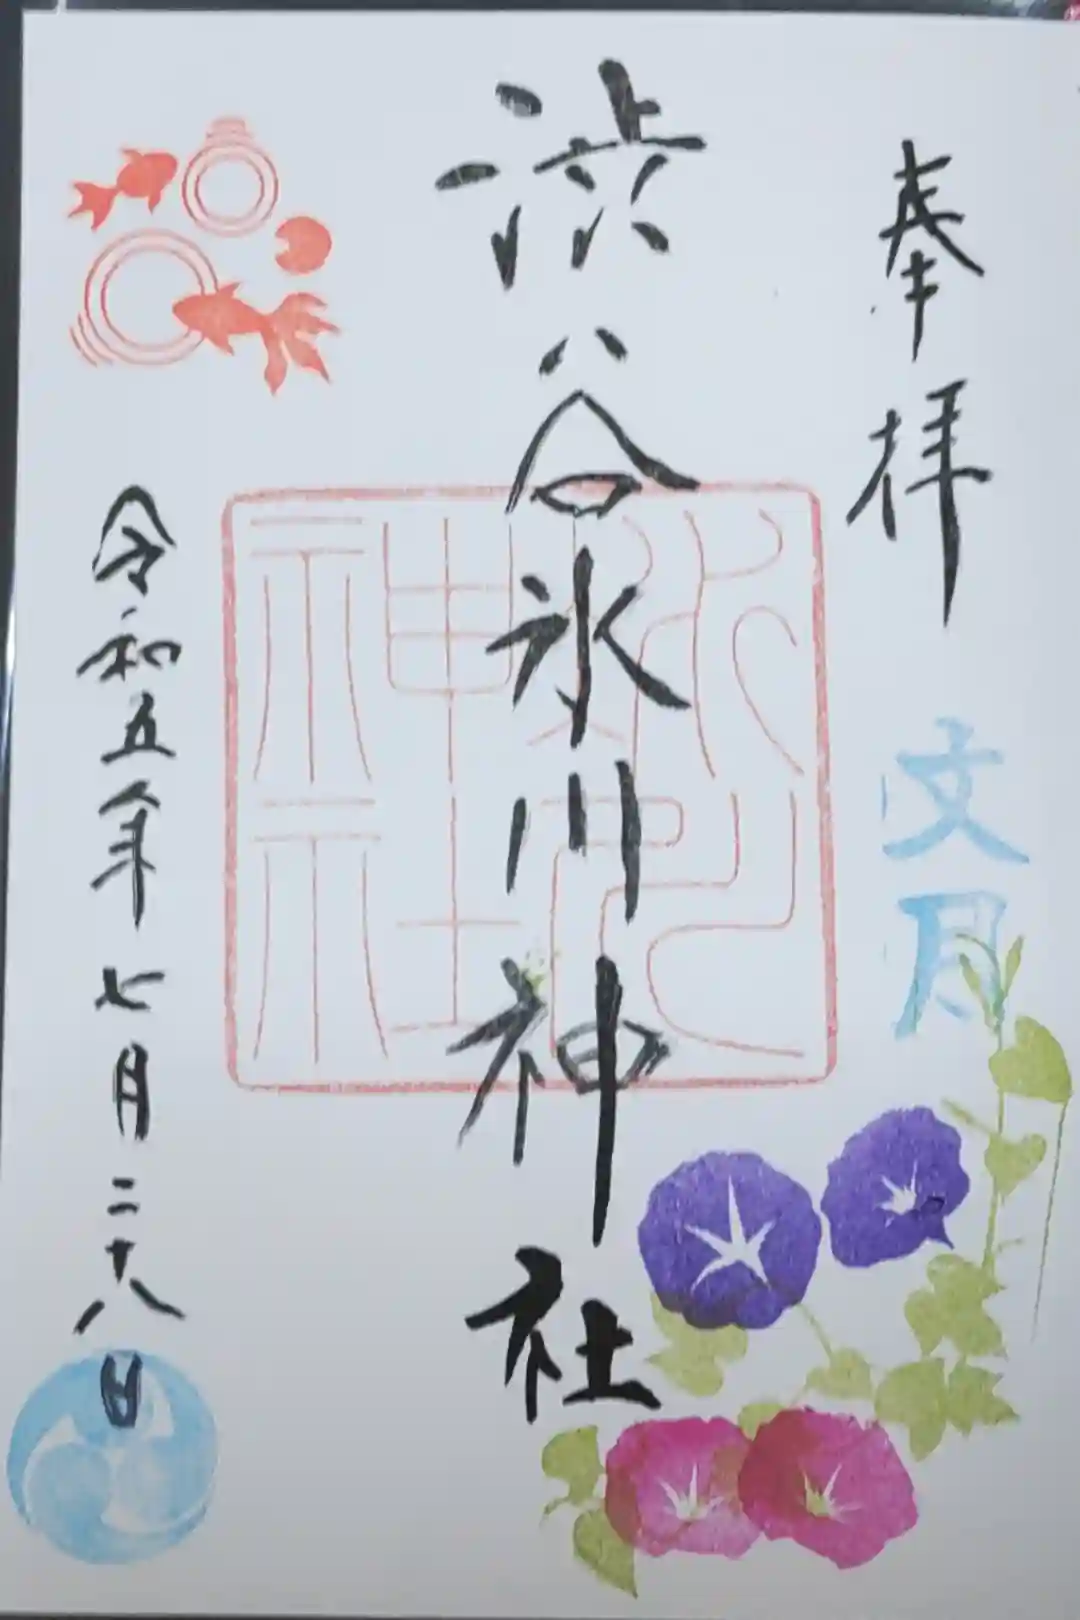 奉拝
文月
渋谷氷川神社
令和五年七月二十八日